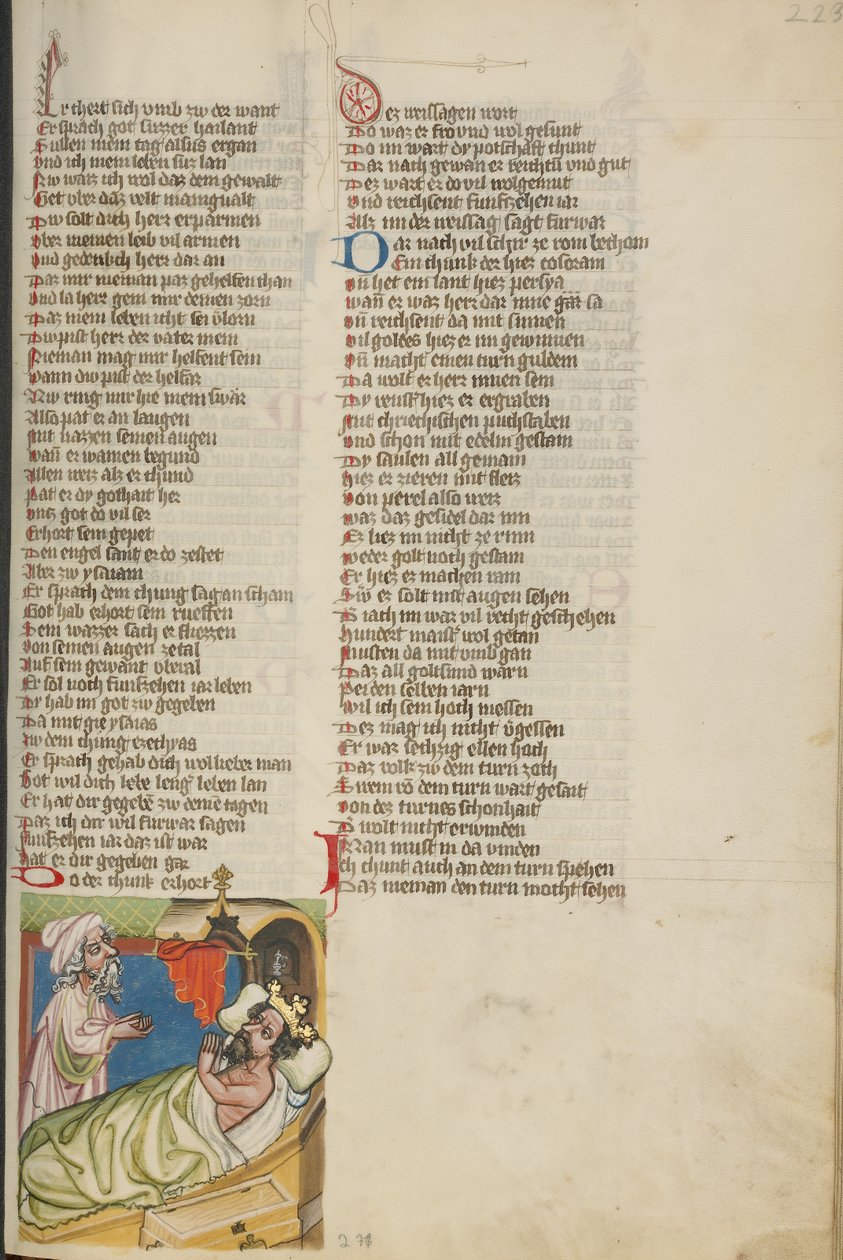 223
Er chert sich vmb zw der want
Er sprach got suzzer hailant
Sullen mein tag alsus ergan
Vnd ich mein leben sus lan
Nw waiz ich wol daz dein gewalt
Get vber daz velt manigualt
Dw solt dich herr erparmen
Vber meinen leib vil armen
Vnd gedench herr dar an
Daz mir nieman paz gehelfen chan
Vnd la herr gein mir deinen zorn
Daz mein leben icht sei vlorn
Dw pist herr der vater mein
Nieman mag mir helfent sein
Wann dw pist der helfär
Nw ring mir hie mein swär
Also pat er an laugen
Mit nazzen seinen augen
Wañ er wainen begund
Allen weis als er chund
Pat er dy gothait her
Vntz got do vil ser
Erhort sein gepet
Den engel sant er do zestet
Aber zw ysaiam
Er sprach dem chung sag an scham
Got hab erhort sein rueffen
Sein wazzer sach er fliezzen
Von seinen augen zetal
Auf sein gewant vberal
Er sol noch funfzehen iar leben
Dy hab im got zw gegeben
Da mit gie ysaias
Zw dem chung ezechyas
Er sprach gehab dich wol lieber man
Got wil dich lebe leng leben lan
Er hat dir gegebē zw deinē tagen
Daz ich dir wil furwar sagen
Funfzehen iar daz ist war
Hat er dir gegeben gar
Do der chunk erhort
Dez weissagen wort
Do waz er fro vnd wol gesunt
Do im wart dy potschaft chunt
Dar nach gewan er reichtū vnd gut
Dez wart er do vil wolgemut
Vnd reichsent funfzehen iar
Alz im der weissag sagt furwar
Dar nach vil schir ze rom bechom
Ein chunk der hiez cosdram
Vñ het ein lant hiez persya
Wañ er waz herr dar inne gar sa
Vñ reichsent da mit sinnen
Vil goldes hiez er im gewinnen
Vñ macht einen turn guldein
Da wolt er herr innen sein
Dy venst hiez er ergraben
Mit chriechischen puchstaben
Vnd schon mit edelm gestain
Dy saulen all gemain
Hiez er zieren mit fleiz
Von perel also weiz
Waz daz gesidel dar inn
Ez liez im nicht ze rinn
Weder golt noch gestain
Er hiez er machen rain
Sw er solt mit augen sehen
D iach im war vil recht geschehen
Hundert maist wol getan
Musten da mit vmb gan
Daz all goltsmid warn
Pei den selben iarn
Wil ich sein hoch messen
Dez mag ich nicht v̄gessen
Er waz sechzig ellen hoch
Daz volk zw dem turn zoch
Swem vō dem turn wart gesait
Von dez turnes schonhait
D wolt nicht erwinden
Man must in da vinden
Ich chunt auch an dem turn spehen
Daz nieman den turn mocht sehen